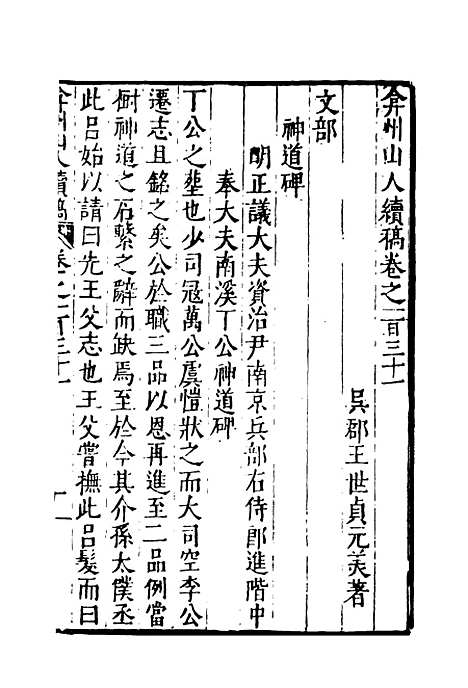 弇州山人續稿卷之一百三十一
吳郡王世貞元美著
文部
神道碑
明正議大夫資治尹南京兵部右侍郎進階中
奉大夫南溪丁公神道碑
丁公之塟也少司冦萬公虞愷狀之而大司空李公
遷志且銘之矣公於職三品以恩再進至二品例當
樹神道之石繫之辭而缺焉至於今其介孫太僕丞
此呂始以請曰先王父志也王父嘗撫此呂髮而曰
弇州山人續稿 卷之一百三十一 一